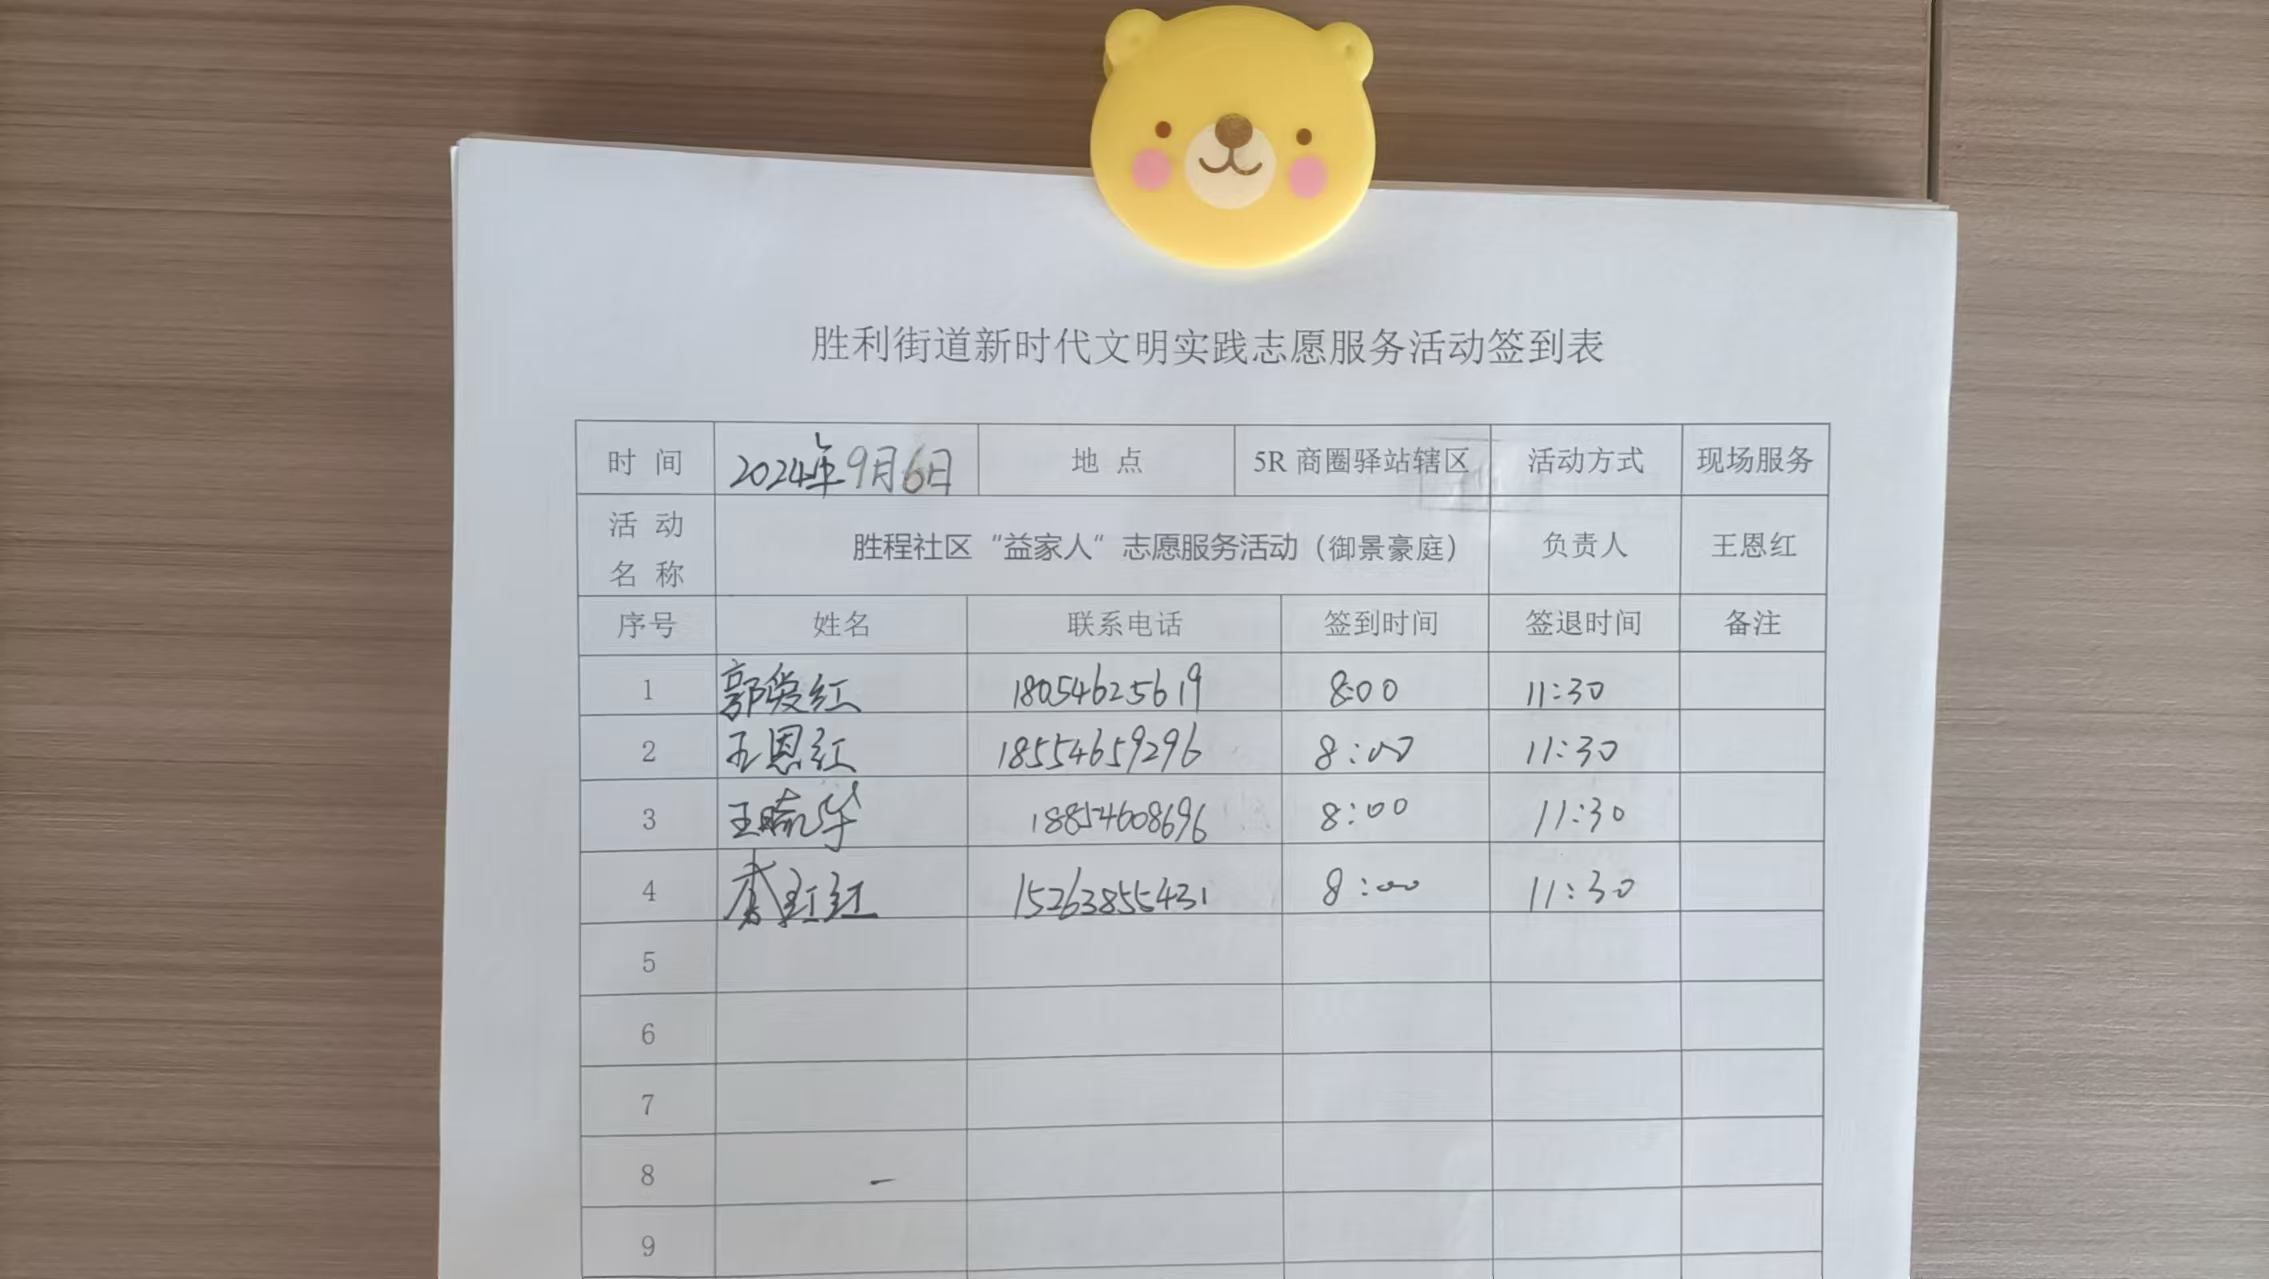 胜利街道新时代文明实践志愿服务活动签到表
时 间 2024年9月6日 地 点 5R 商圈驿站辖区 活动方式 现场服务
活 动
名 称 胜程社区“益家人”志愿服务活动（御景豪庭） 负责人 王恩红
序号 姓名 联系电话 签到时间 签退时间 备注
1 郭爱红 18054625619 8:00 11:30
2 王恩红 18554659296 8:00 11:30
3 王晓华 18854608696 8:00 11:30
4 李红红 15263855431 8:00 11:30
5
6
7
8
9